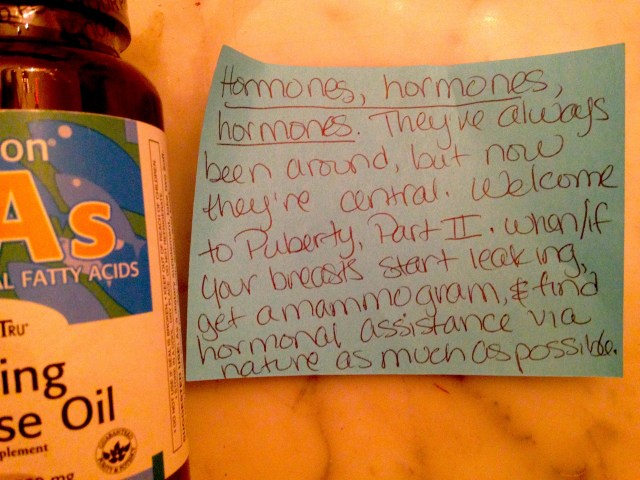 on®
As
L FATTY ACIDS
TRU™
ing
se Oil
plement
mg
Hormones, hormones,
hormones. They've always
been around, but now
they're central. Welcome
to Puberty, Part II. When/if
your breasts start leaking,
get a mammogram, & find
hormonal assistance via
nature as much as possible.